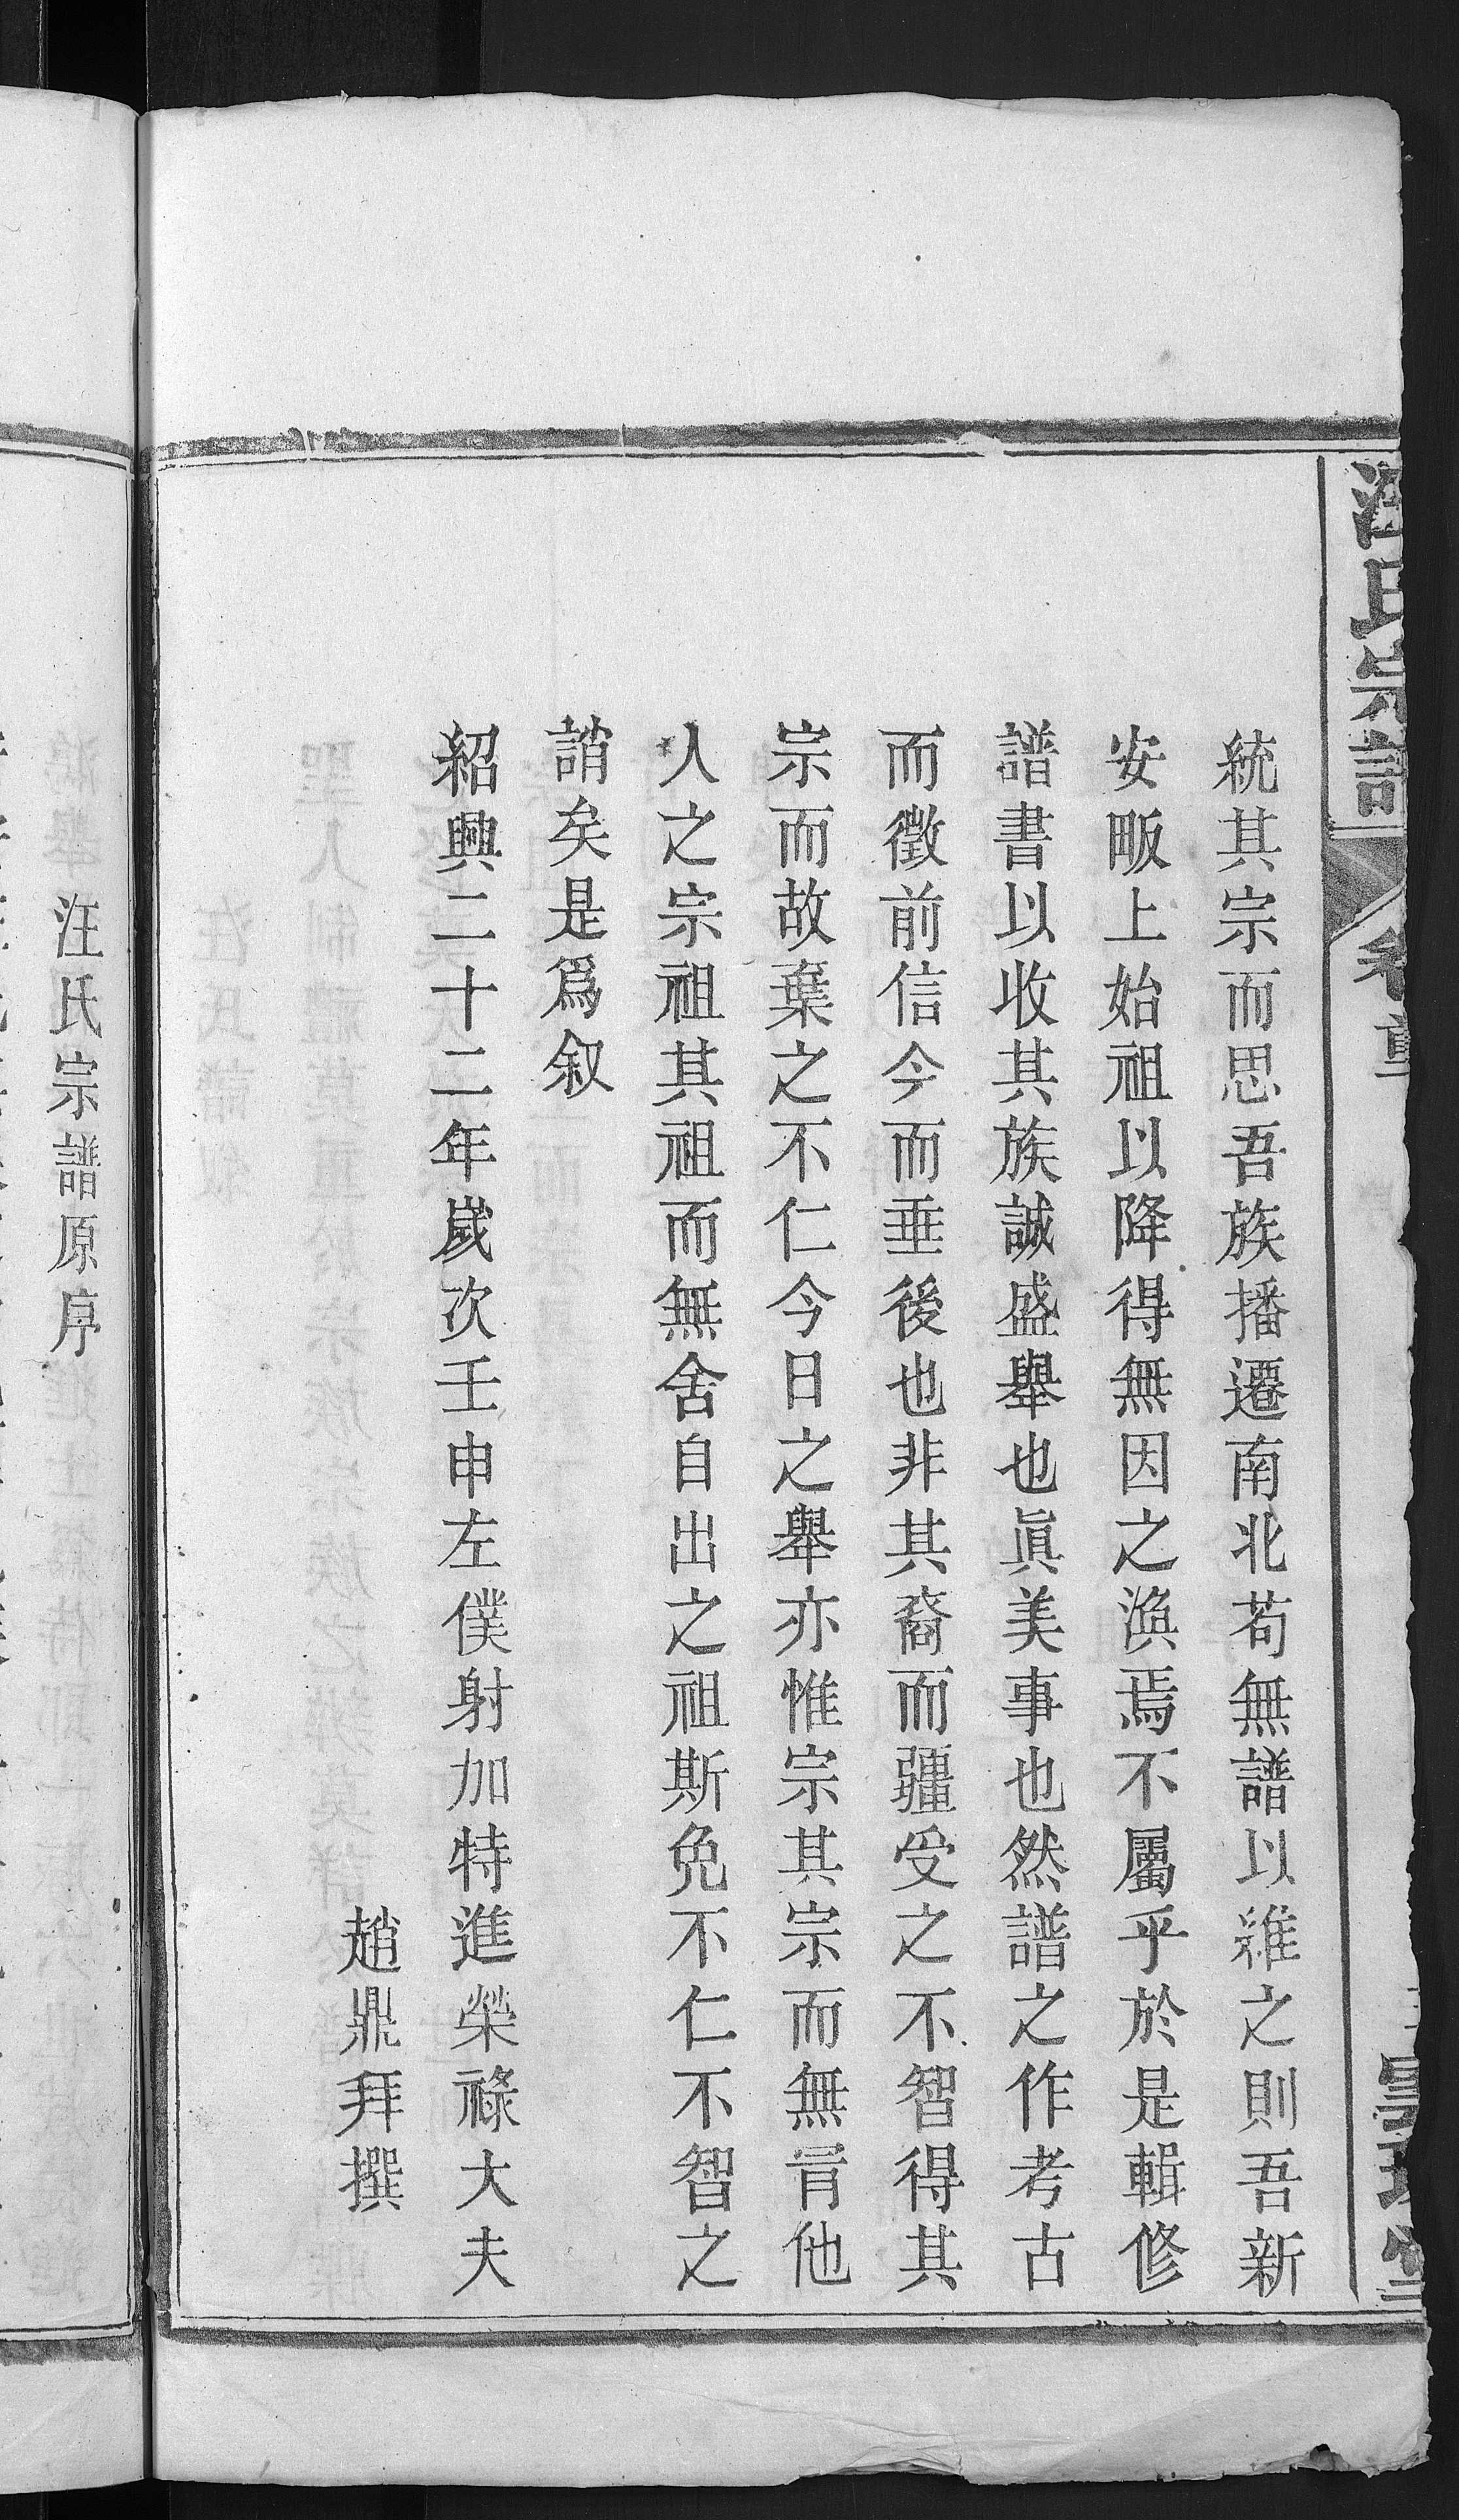 汪氏宗譜
卷首
統其宗而思吾族播遷南北苟無譜以維之則吾新
安畈上始祖以降得無因之渙焉不屬乎於是輯修
譜書以收其族誠盛舉也眞美事也然譜之作考古
而徵前信今而垂後也非其裔而疆受之不智得其
宗而故棄之不仁今日之舉亦惟宗其宗而無肯他
人之宗祖其祖而無舍自出之祖斯免不仁不智之
誚矣是爲叙
紹興二十二年歲次壬申左僕射加特進榮祿大夫
趙鼎拜撰
汪氏宗譜原序